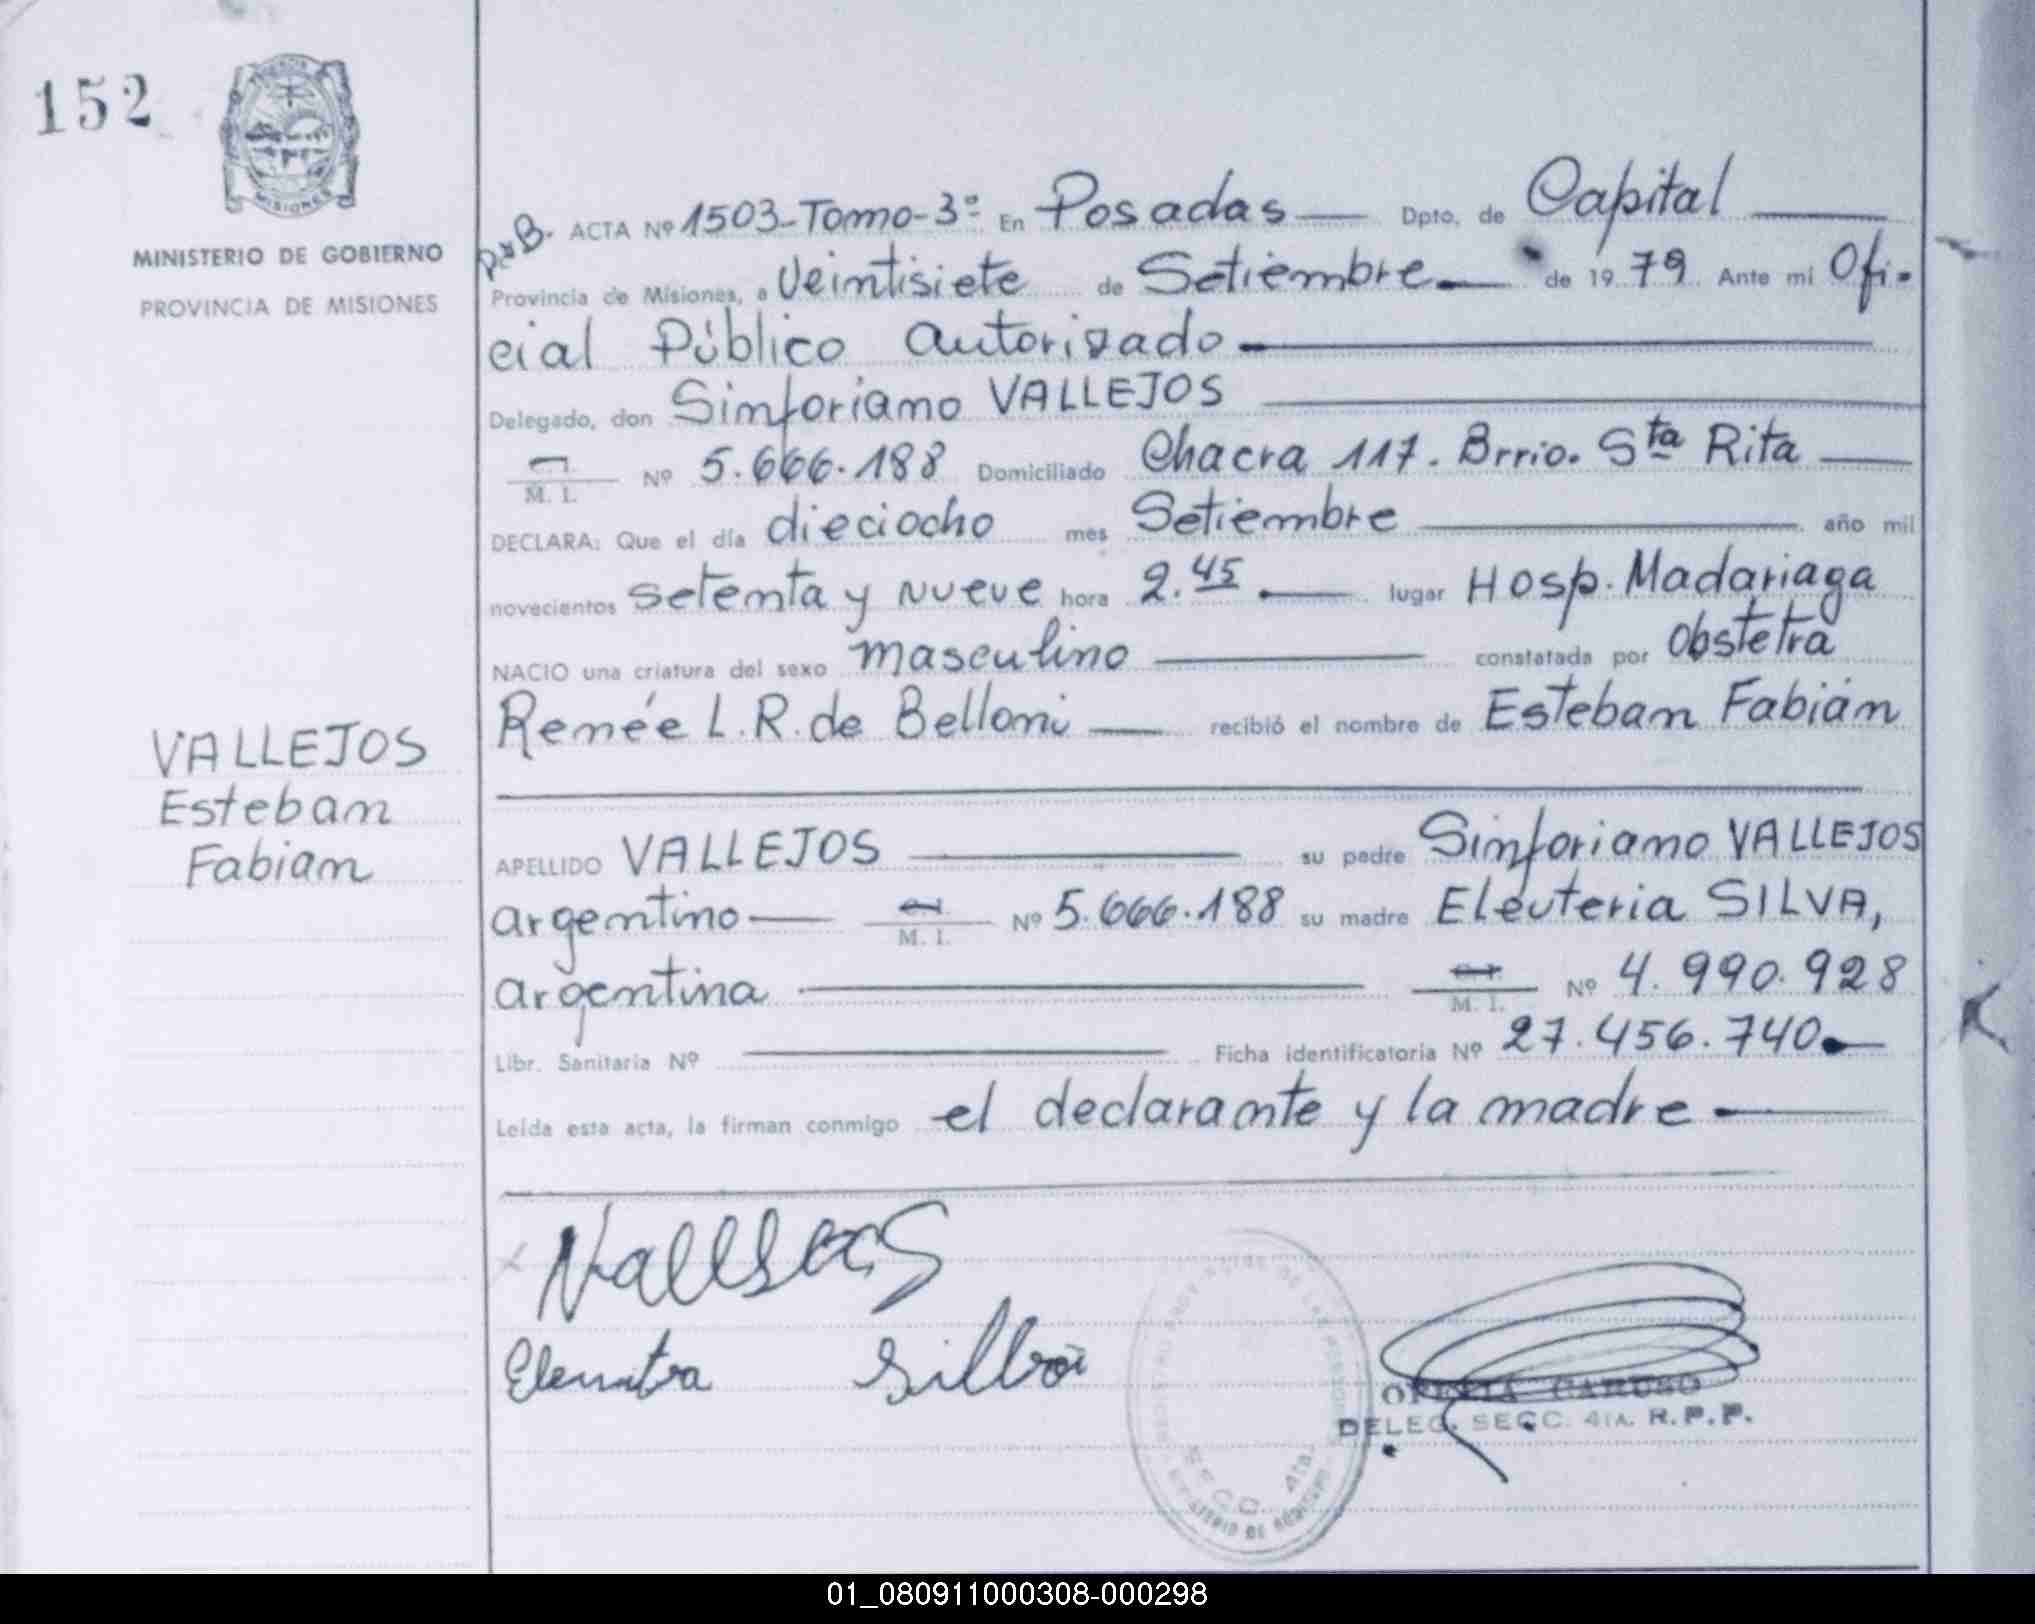 152
MISIONES
MINISTERIO DE GOBIERNO
PROVINCIA DE MISIONES
VALLEJOS
Esteban
Fabian
ACTA Nº 1503-Tomo-3º En Posadas Dpto. de Capital
Provincia de Misiones, a Veintisiete de Setiembre de 1979 Ante mi Ofi-
cial Público autorizado
Delegado, don Sinforiano VALLEJOS
M. I. Nº 5.666.188 Domiciliado Chacra 117. Brrio. Sta Rita
DECLARA: Que el día dieciocho mes Setiembre año mil
novecientos setenta y nueve hora 2.45 lugar Hosp. Madariaga
NACIO una criatura del sexo masculino constatada por Obstetra
Renée L.R. de Belloni recibió el nombre de Esteban Fabián
APELLIDO VALLEJOS su padre Sinforiano VALLEJOS
argentino M. I. Nº 5.666.188 su madre Eleuteria SILVA,
argentina M. I. Nº 4.990.928
Libr. Sanitaria Nº Ficha identificatoria Nº 27.456.740
Leída esta acta, la firman conmigo el declarante y la madre
SECC. 4ta.
OFELIA CARUSO
DELEG. SECC. 4TA. R.P.P.
01_080911000308-000298